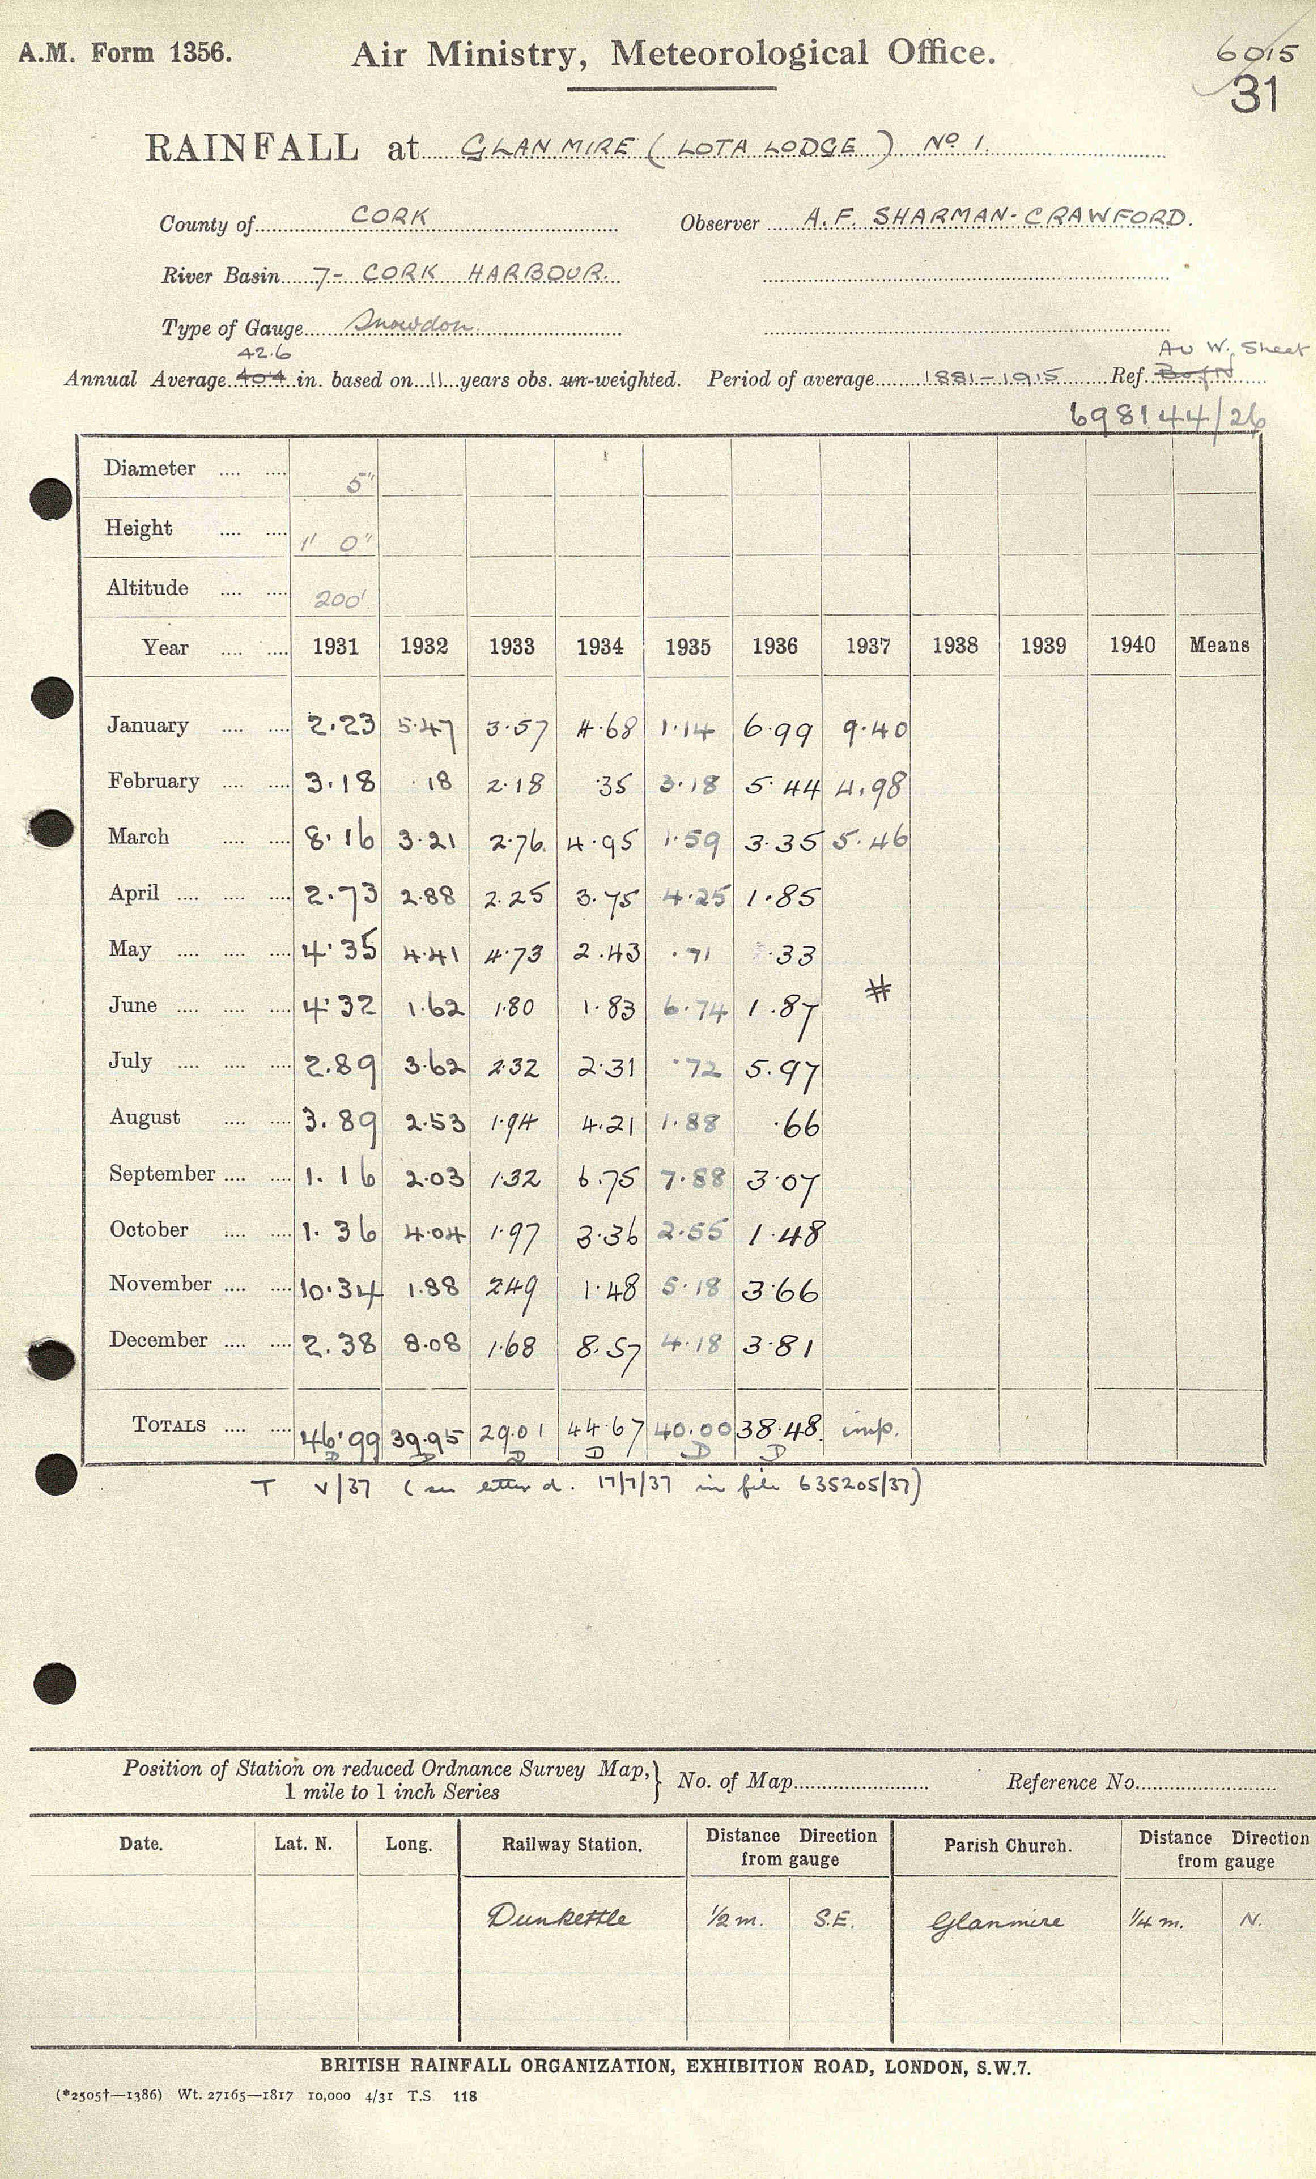 A.M. Form 1356.
Air Ministry, Meteorological Office.
6015
31
RAINFALL at GLANMIRE (LOTA LODGE) No 1.
County of CORK Observer A.F. SHARMAN-CRAWFORD.
River Basin 7- CORK HARBOUR.
Type of Gauge Snowdon
42.6 Av W. Sheet
Annual Average 40.4 in. based on 11 years obs. un-weighted. Period of average 1881-1915 Ref. B of N
698144/26
Diameter .... .... 5"
Height .... .... 1' 0"
Altitude .... .... 200'
Year .... .... 1931 1932 1933 1934 1935 1936 1937 1938 1939 1940 Means
January .... .... 2.23 5.47 3.57 4.68 1.14 6.99 9.40
February .... .... 3.18 .18 2.18 .35 3.18 5.44 4.98
March .... .... 8.16 3.21 2.76 4.95 1.59 3.35 5.46
April .... .... .... 2.73 2.88 2.25 3.75 4.25 1.85
May .... .... .... 4.35 4.41 4.73 2.43 .71 .33
June .... .... .... 4.32 1.62 1.80 1.83 6.74 1.87 #
July .... .... .... 2.89 3.62 2.32 2.31 .72 5.97
August .... .... 3.89 2.53 1.94 4.21 1.88 .66
September .... .... 1.16 2.03 1.32 6.75 7.88 3.07
October .... .... 1.36 4.04 1.97 3.36 2.55 1.48
November .... .... 10.34 1.88 249 1.48 5.18 3.66
December .... .... 2.38 8.08 1.68 8.57 4.18 3.81
TOTALS .... .... 46.99 39.95 29.01 44.67 40.00 38.48 imp.
D D D D D D
T V/37 (see letter d. 17/7/37 in file 635205/37)
Position of Station on reduced Ordnance Survey Map,
1 mile to 1 inch Series } No. of Map Reference No.
Date. Lat. N. Long. Railway Station. Distance Direction from gauge Parish Church. Distance Direction from gauge
Dunkettle 1/2 m. S.E. Glanmire 1/4 m. N.
BRITISH RAINFALL ORGANIZATION, EXHIBITION ROAD, LONDON, S.W.7.
(*2505†—1386) Wt. 27165—1817 10,000 4/31 T.S. 118